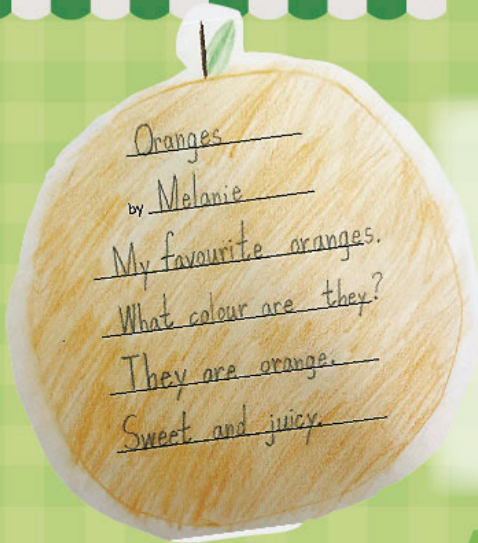 Oranges
by Melanie
My favourite oranges.
What colour are they?
They are orange.
Sweet and juicy.